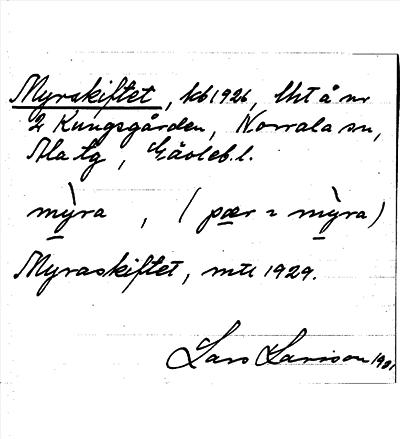 Myrskiftet, kb 1926, lht å nr
2 Kungsgården, Norrala sn,
Ala tg, Gävleb. l.
mỳra, ( pær = mỳra)
Myraskiftet, mtl 1929.
Lars Larsson 1981